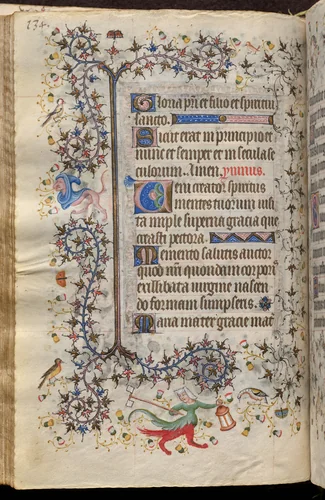 134.
Gloria pri et filio et spiritui
sancto.
Sicut erat in principio et
nunc et semper et in secula se
culorum. Amen. ymnus.
Veni creator spiritus
mentes tuorum visi
ta imple superna gracia que
creasti pectora.
Memento salutis auctor
quod nri quondam corporis
ex illibata virgine nascen
do formam sumpseris.
Maria mater gracie mat